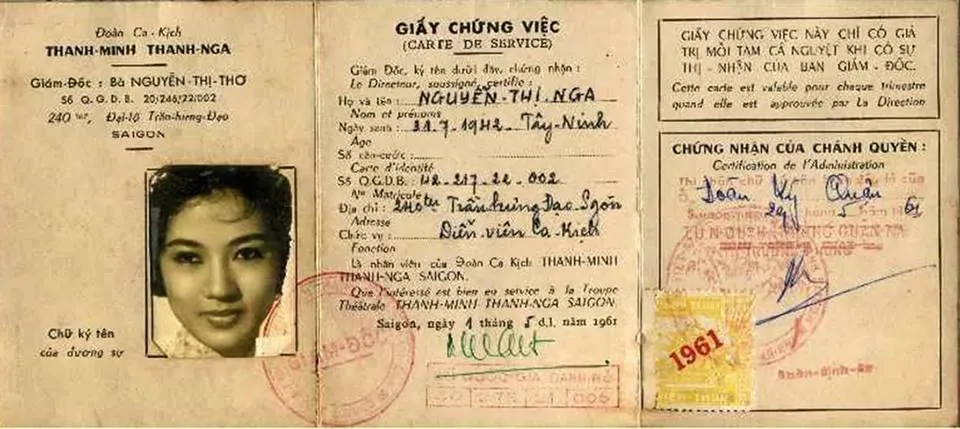 Đoàn Ca-Kịch
THANH-MINH THANH-NGA
Giám-Đốc : Bà NGUYỄN-THỊ-THƠ
Số Q.G.D.B. 20/246/22/002
240 ter, Đại-lộ Trần-hưng-Đạo
SAIGON
Chữ ký tên
của đương sự
GIẤY CHỨNG VIỆC
(CARTE DE SERVICE)
Giám Đốc, ký tên dưới đây, chứng nhận :
Le Directeur, soussigné, certifie :
Họ và tên : NGUYỄN-THỊ-NGA
Nom et prénoms
Ngày sanh : 31.7.1942 Tây-Ninh
Age
Số căn-cước :
Carte d'identité
Số Q.G.D.B. : 42.217.22.002
Nº Matricule
Địa chỉ : 240ter Trần hưng Đạo Sgòn
Adresse
Chức vụ : Diễn viên Ca-Kịch
Fonction
Là nhân viên của Đoàn Ca Kịch THANH-MINH
THANH-NGA SAIGON.
Que l'intéressé est bien eu service à la Troupe
Théâtrale THANH-MINH THANH-NGA SAIGON.
Saigon, ngày 1 tháng 5 d.l. năm 1961
GIÁM-ĐỐC
GIẤY CHỨNG VIỆC NÀY CHỈ CÓ GIÁ
TRỊ MỖI TAM CÁ NGUYỆT KHI CÓ SỰ
THỊ - NHẬN CỦA BAN GIÁM - ĐỐC.
Cette carte est valable pour chaque trimestre
quand elle est approuvée par La Direction
CHỨNG NHẬN CỦA CHÁNH QUYỀN :
Certification de l'Administration
Đoàn Kỳ Quân
29 5 61
1961